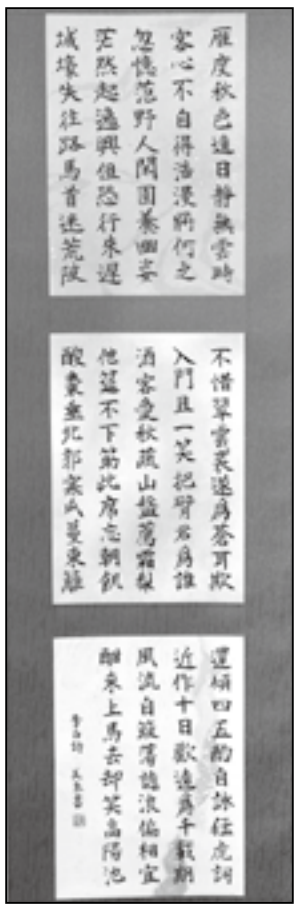 雁度秋色遠日靜無雲時
客心不自得浩漫將何之
忽憶范野人閑園養幽姿
茫然起逸興但恐行來遲
城壕失往路馬首迷荒陂
不惜翠雲裘遂為蒼耳欺
入門且一笑把臂君為誰
酒客愛秋蔬山盤薦霜梨
他筵不下箸此席忘朝飢
酸棗垂北郭寒瓜蔓東籬
還傾四五酌自詠猛虎詞
近作十日歡遠為千載期
風流自簸蕩謔浪偏相宜
酣來上馬去却笑高陽池
李白詩